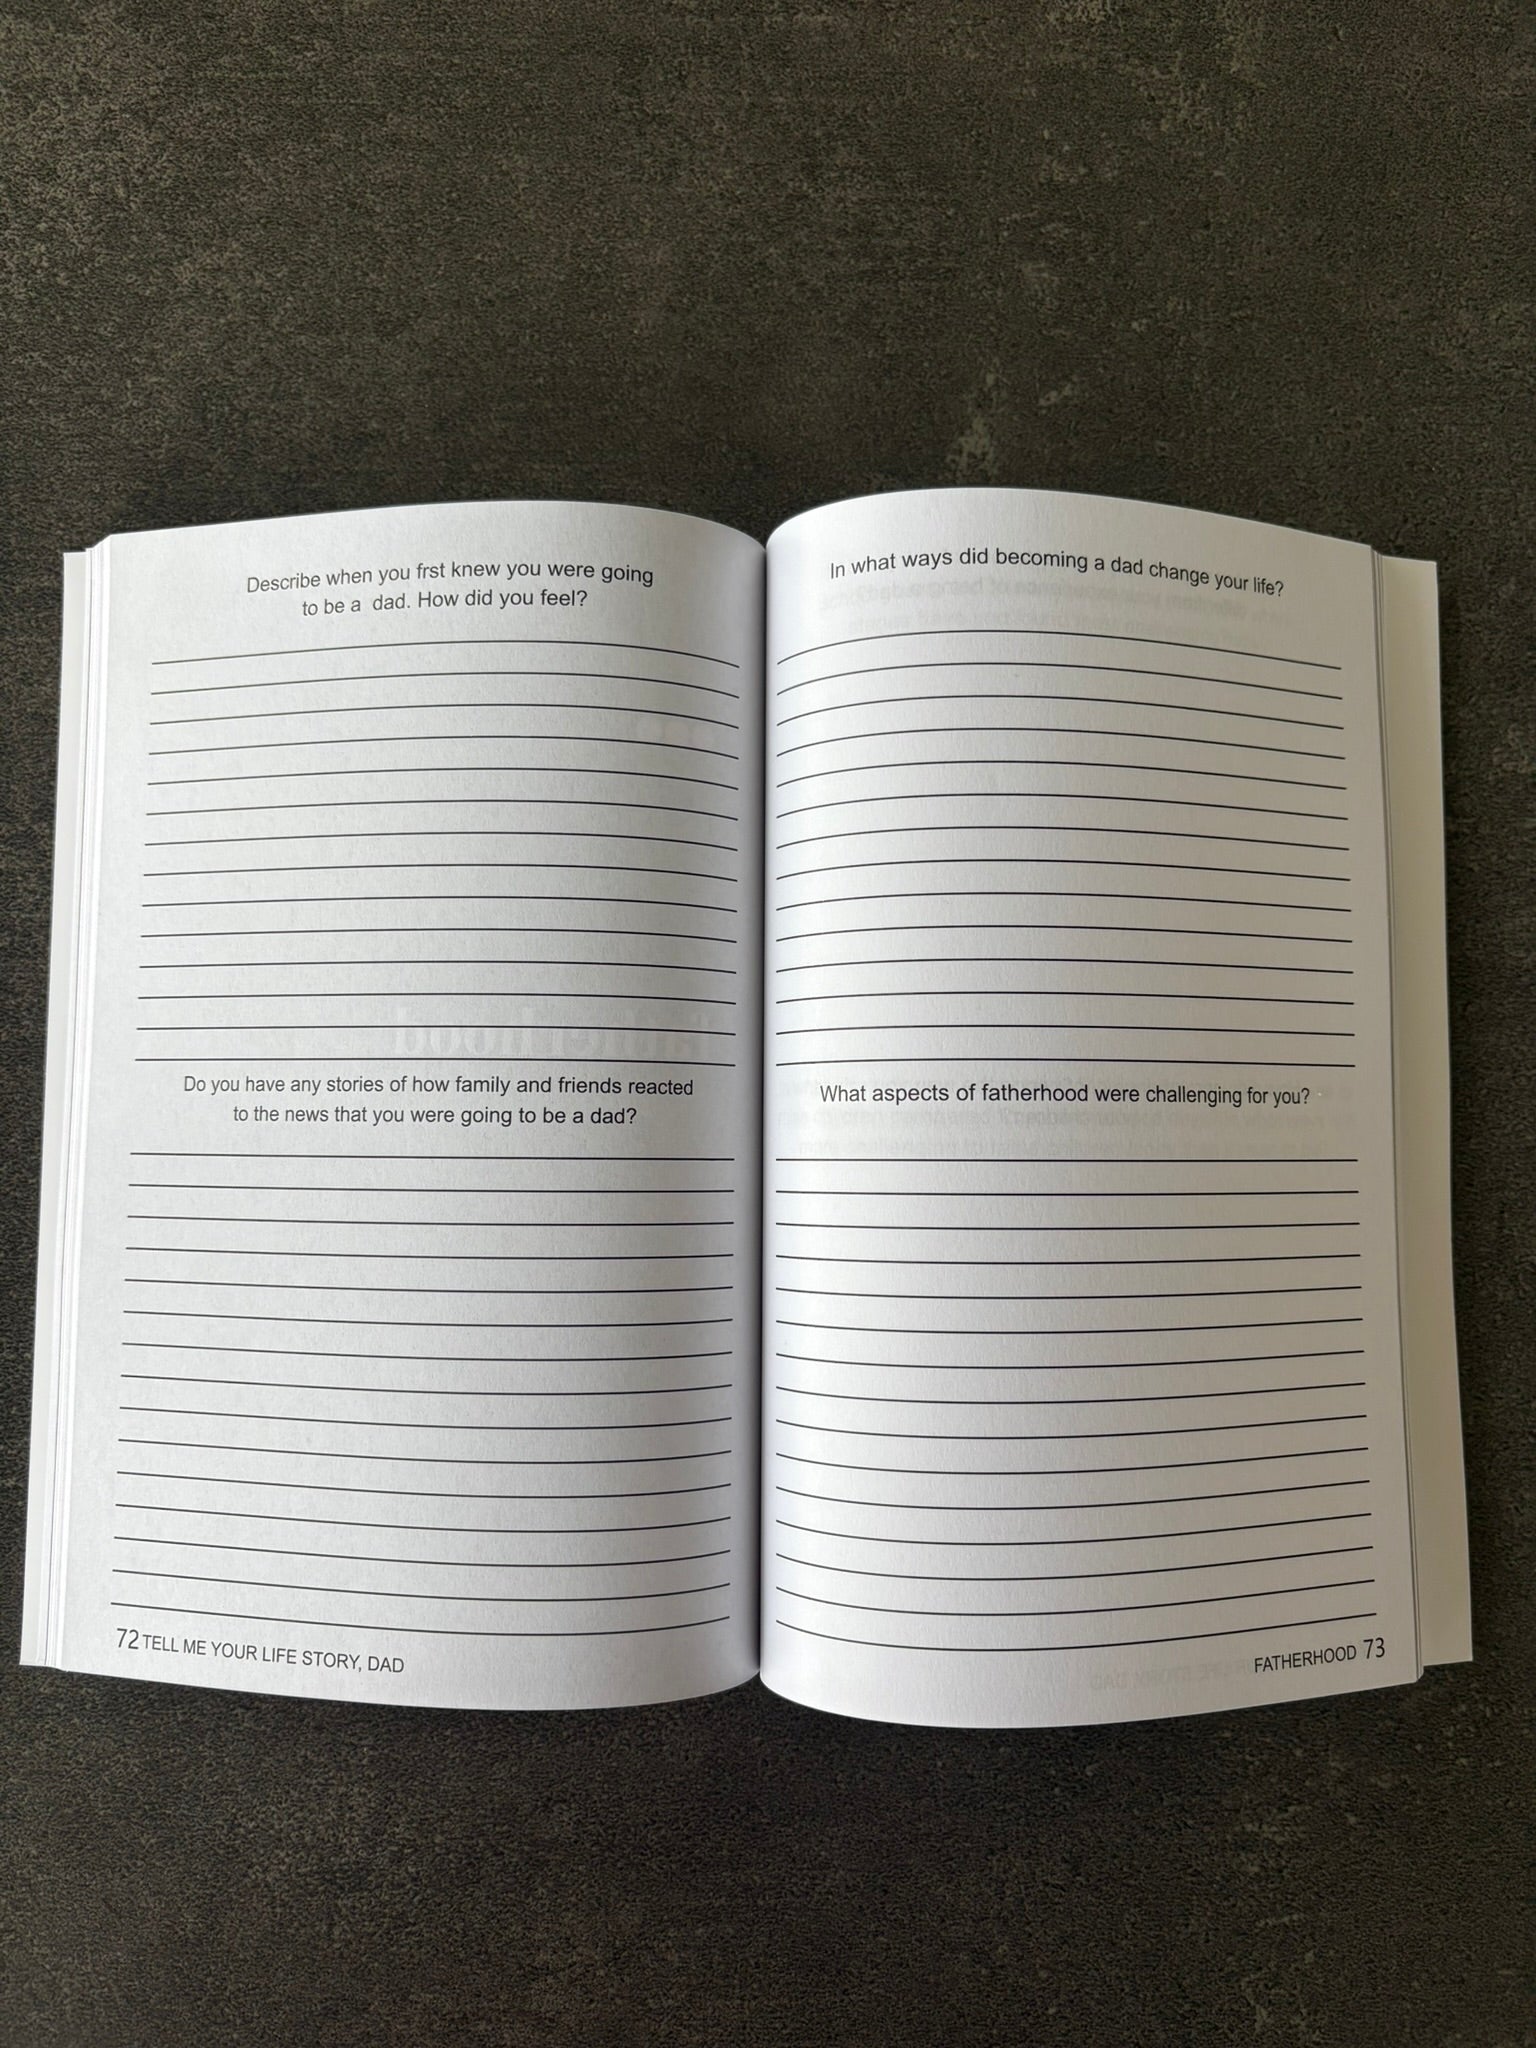 Describe when you frst knew you were going
to be a dad. How did you feel?
Do you have any stories of how family and friends reacted
to the news that you were going to be a dad?
72 TELL ME YOUR LIFE STORY, DAD
In what ways did becoming a dad change your life?
What aspects of fatherhood were challenging for you?
FATHERHOOD 73